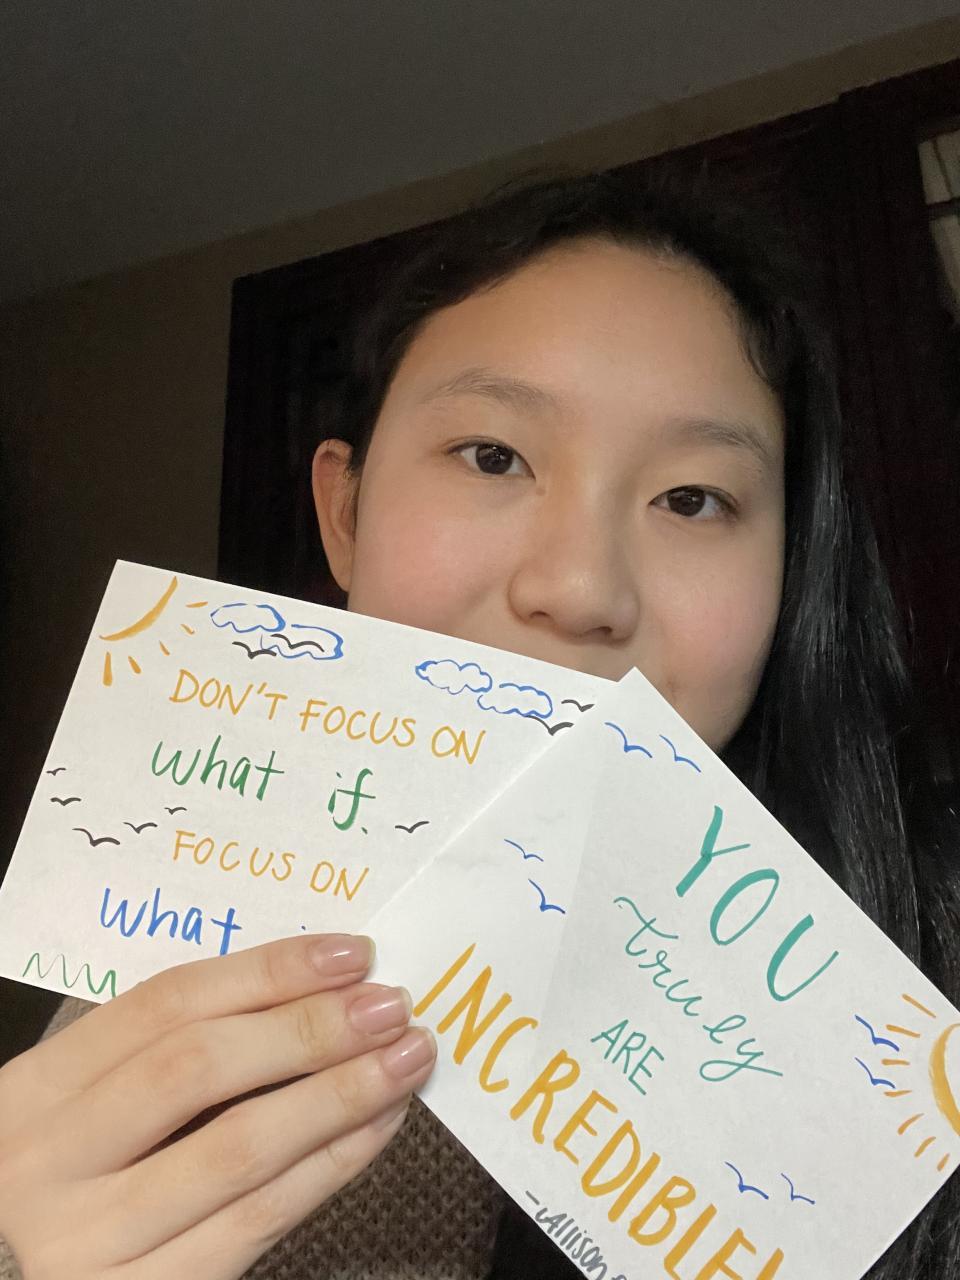 DON'T FOCUS ON
what if.
FOCUS ON
what
YOU
truly
ARE
INCREDIBLE!
-Allison